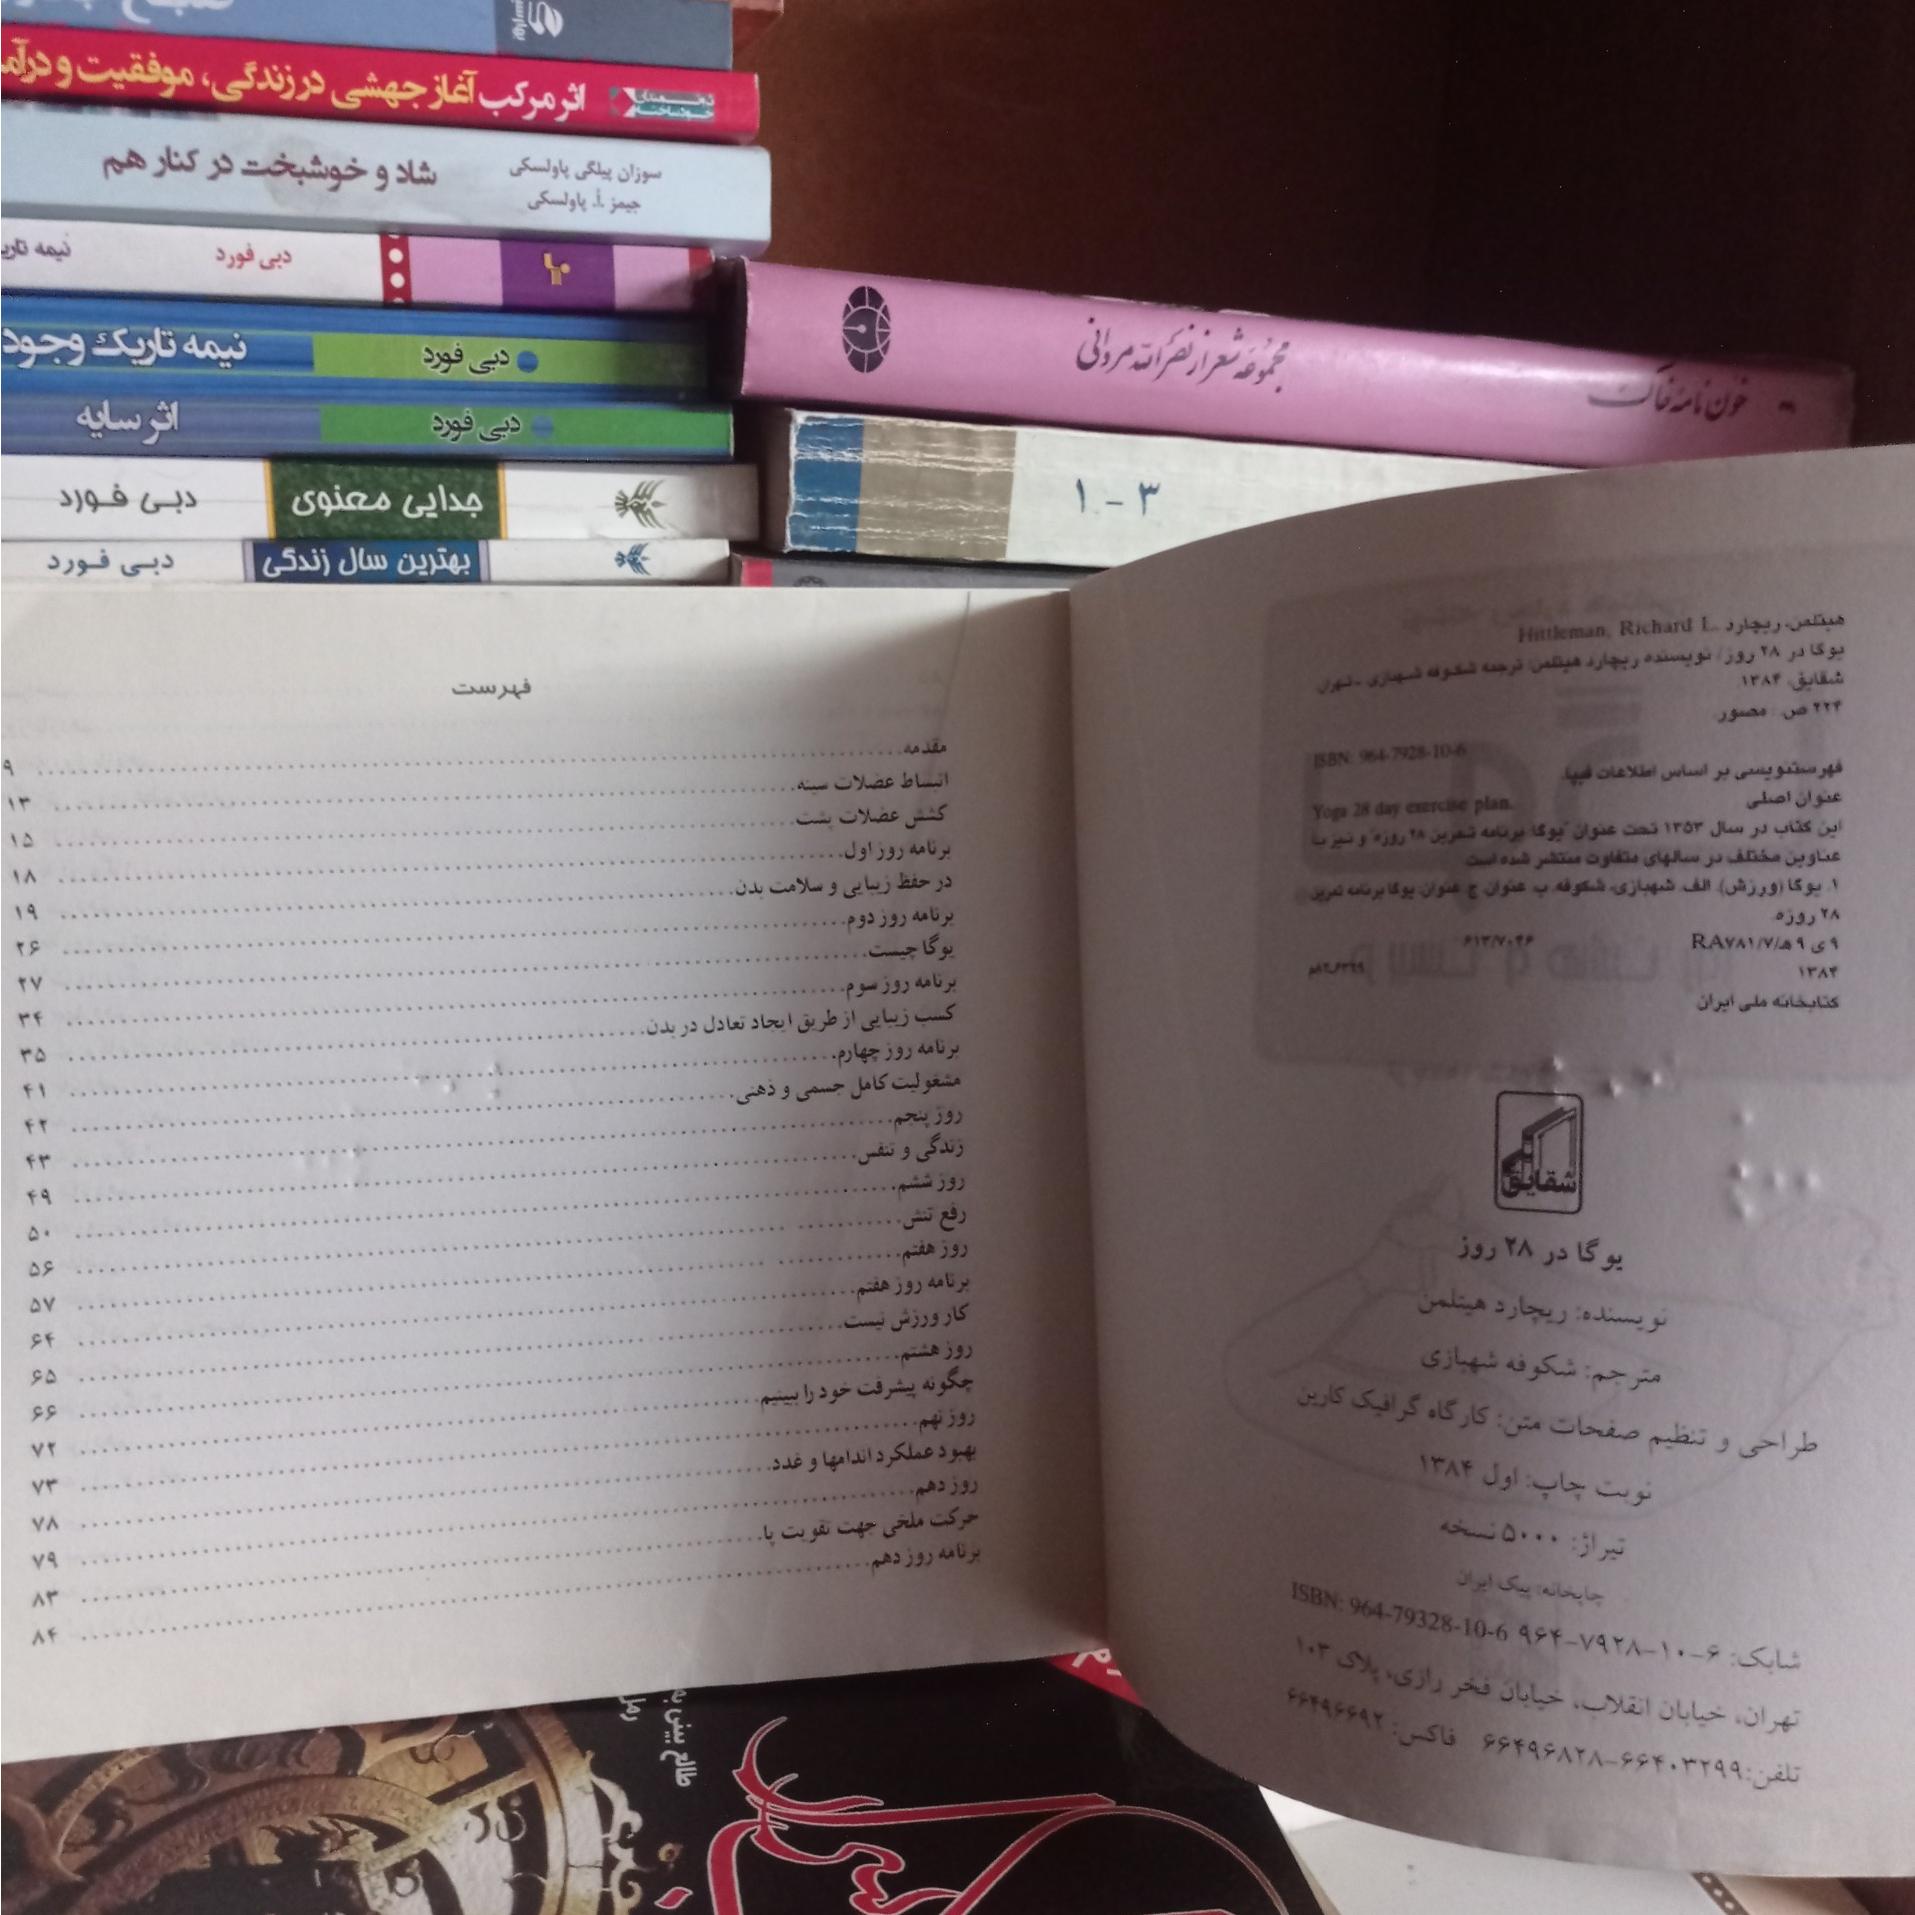 اثر مرکب آغاز جهشی در زندگی، موفقیت و درآمد
سوزان پیلگی پاولسکی
جیمز .أ. پاولسکی
شاد و خوشبخت در کنار هم
دبی فورد
نیمه تاریک وجود
دبی فورد
اثر سایه
دبی فورد
جدایی معنوی
دبی فورد
بهترین سال زندگی
دبی فورد
خون نامه خاک
مجموعه شعر از نصرالله مردانی
۱-۳
هیتلمن، ریچارد Hittleman, Richard L.
یوگا در ۲۸ روز/ نویسنده ریچارد هیتلمن؛ ترجمه شکوفه شهبازی. - تهران:
شقایق، ۱۳۸۴.
۲۲۴ ص. : مصور.
ISBN: 964-7928-10-6
فهرستنویسی بر اساس اطلاعات فیپا.
عنوان اصلی
Yoga 28 day exercise plan.
این کتاب در سال ۱۳۵۳ تحت عنوان "یوگا: برنامه تمرین ۲۸ روزه" و نیز با
عناوین مختلف در سالهای متفاوت منتشر شده است
۱. یوگا (ورزش). الف. شهبازی، شکوفه. ب. عنوان. ج. عنوان: یوگا برنامه تمرین
۲۸ روزه.
۶۱۳/۷۰۴۶ RA۷۸۱/۷/ه۹ ی ۹
۱۳۸۴
کتابخانه ملی ایران
شقایق
یوگا در ۲۸ روز
نویسنده: ریچارد هیتلمن
مترجم: شکوفه شهبازی
طراحی و تنظیم صفحات متن: کارگاه گرافیک کارین
نوبت چاپ: اول ۱۳۸۴
تیراژ: ۵۰۰۰ نسخه
چاپخانه: پیک ایران
شابک: ۶-۱۰-۷۹۲۸-۹۶۴ ISBN: 964-79328-10-6
تهران، خیابان انقلاب، خیابان فخر رازی، پلاک ۱۰۳
تلفن: ۶۶۴۰۳۲۹۹-۶۶۴۹۶۸۲۸ فاکس: ۶۶۴۹۶۶۹۲
فهرست
مقدمه ۹
انبساط عضلات سینه ۱۳
کشش عضلات پشت ۱۵
برنامه روز اول ۱۸
در حفظ زیبایی و سلامت بدن ۱۹
برنامه روز دوم ۲۶
یوگا چیست ۲۷
برنامه روز سوم ۳۴
کسب زیبایی از طریق ایجاد تعادل در بدن ۳۵
برنامه روز چهارم ۴۱
مشغولیت کامل جسمی و ذهنی ۴۲
روز پنجم ۴۳
زندگی و تنفس ۴۹
روز ششم ۵۰
رفع تنش ۵۶
روز هفتم ۵۷
برنامه روز هفتم ۶۴
کار ورزش نیست ۶۵
روز هشتم ۶۶
چگونه پیشرفت خود را ببینیم ۷۲
روز نهم ۷۳
بهبود عملکرد اندامها و غدد ۷۸
روز دهم ۷۹
حرکت ملخی جهت تقویت پا ۸۳
برنامه روز دهم ۸۴
طالع بینی